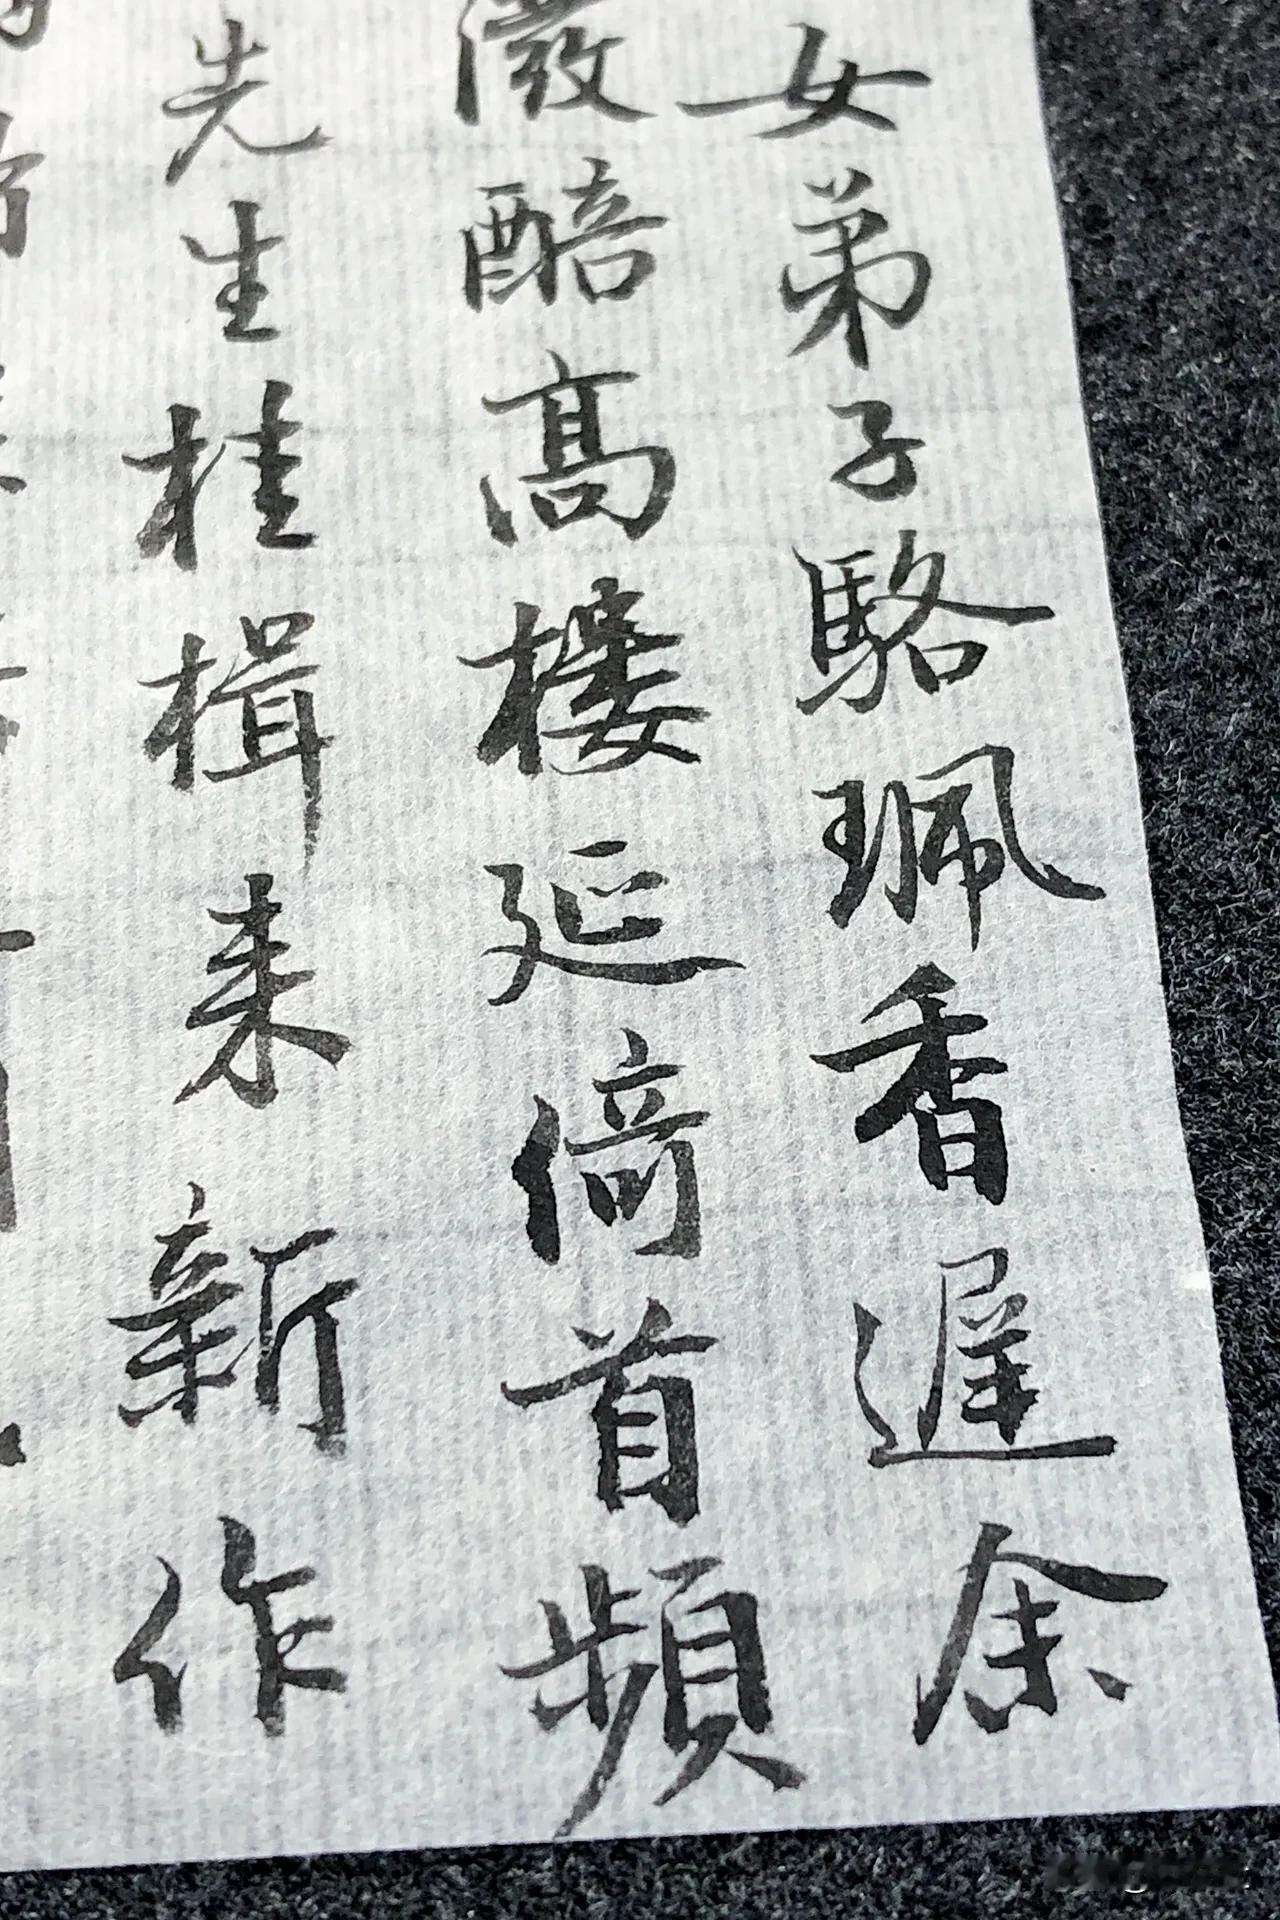 女弟子駱珮香遲余
醅高樓延倚首頻
先生桂楫来新作